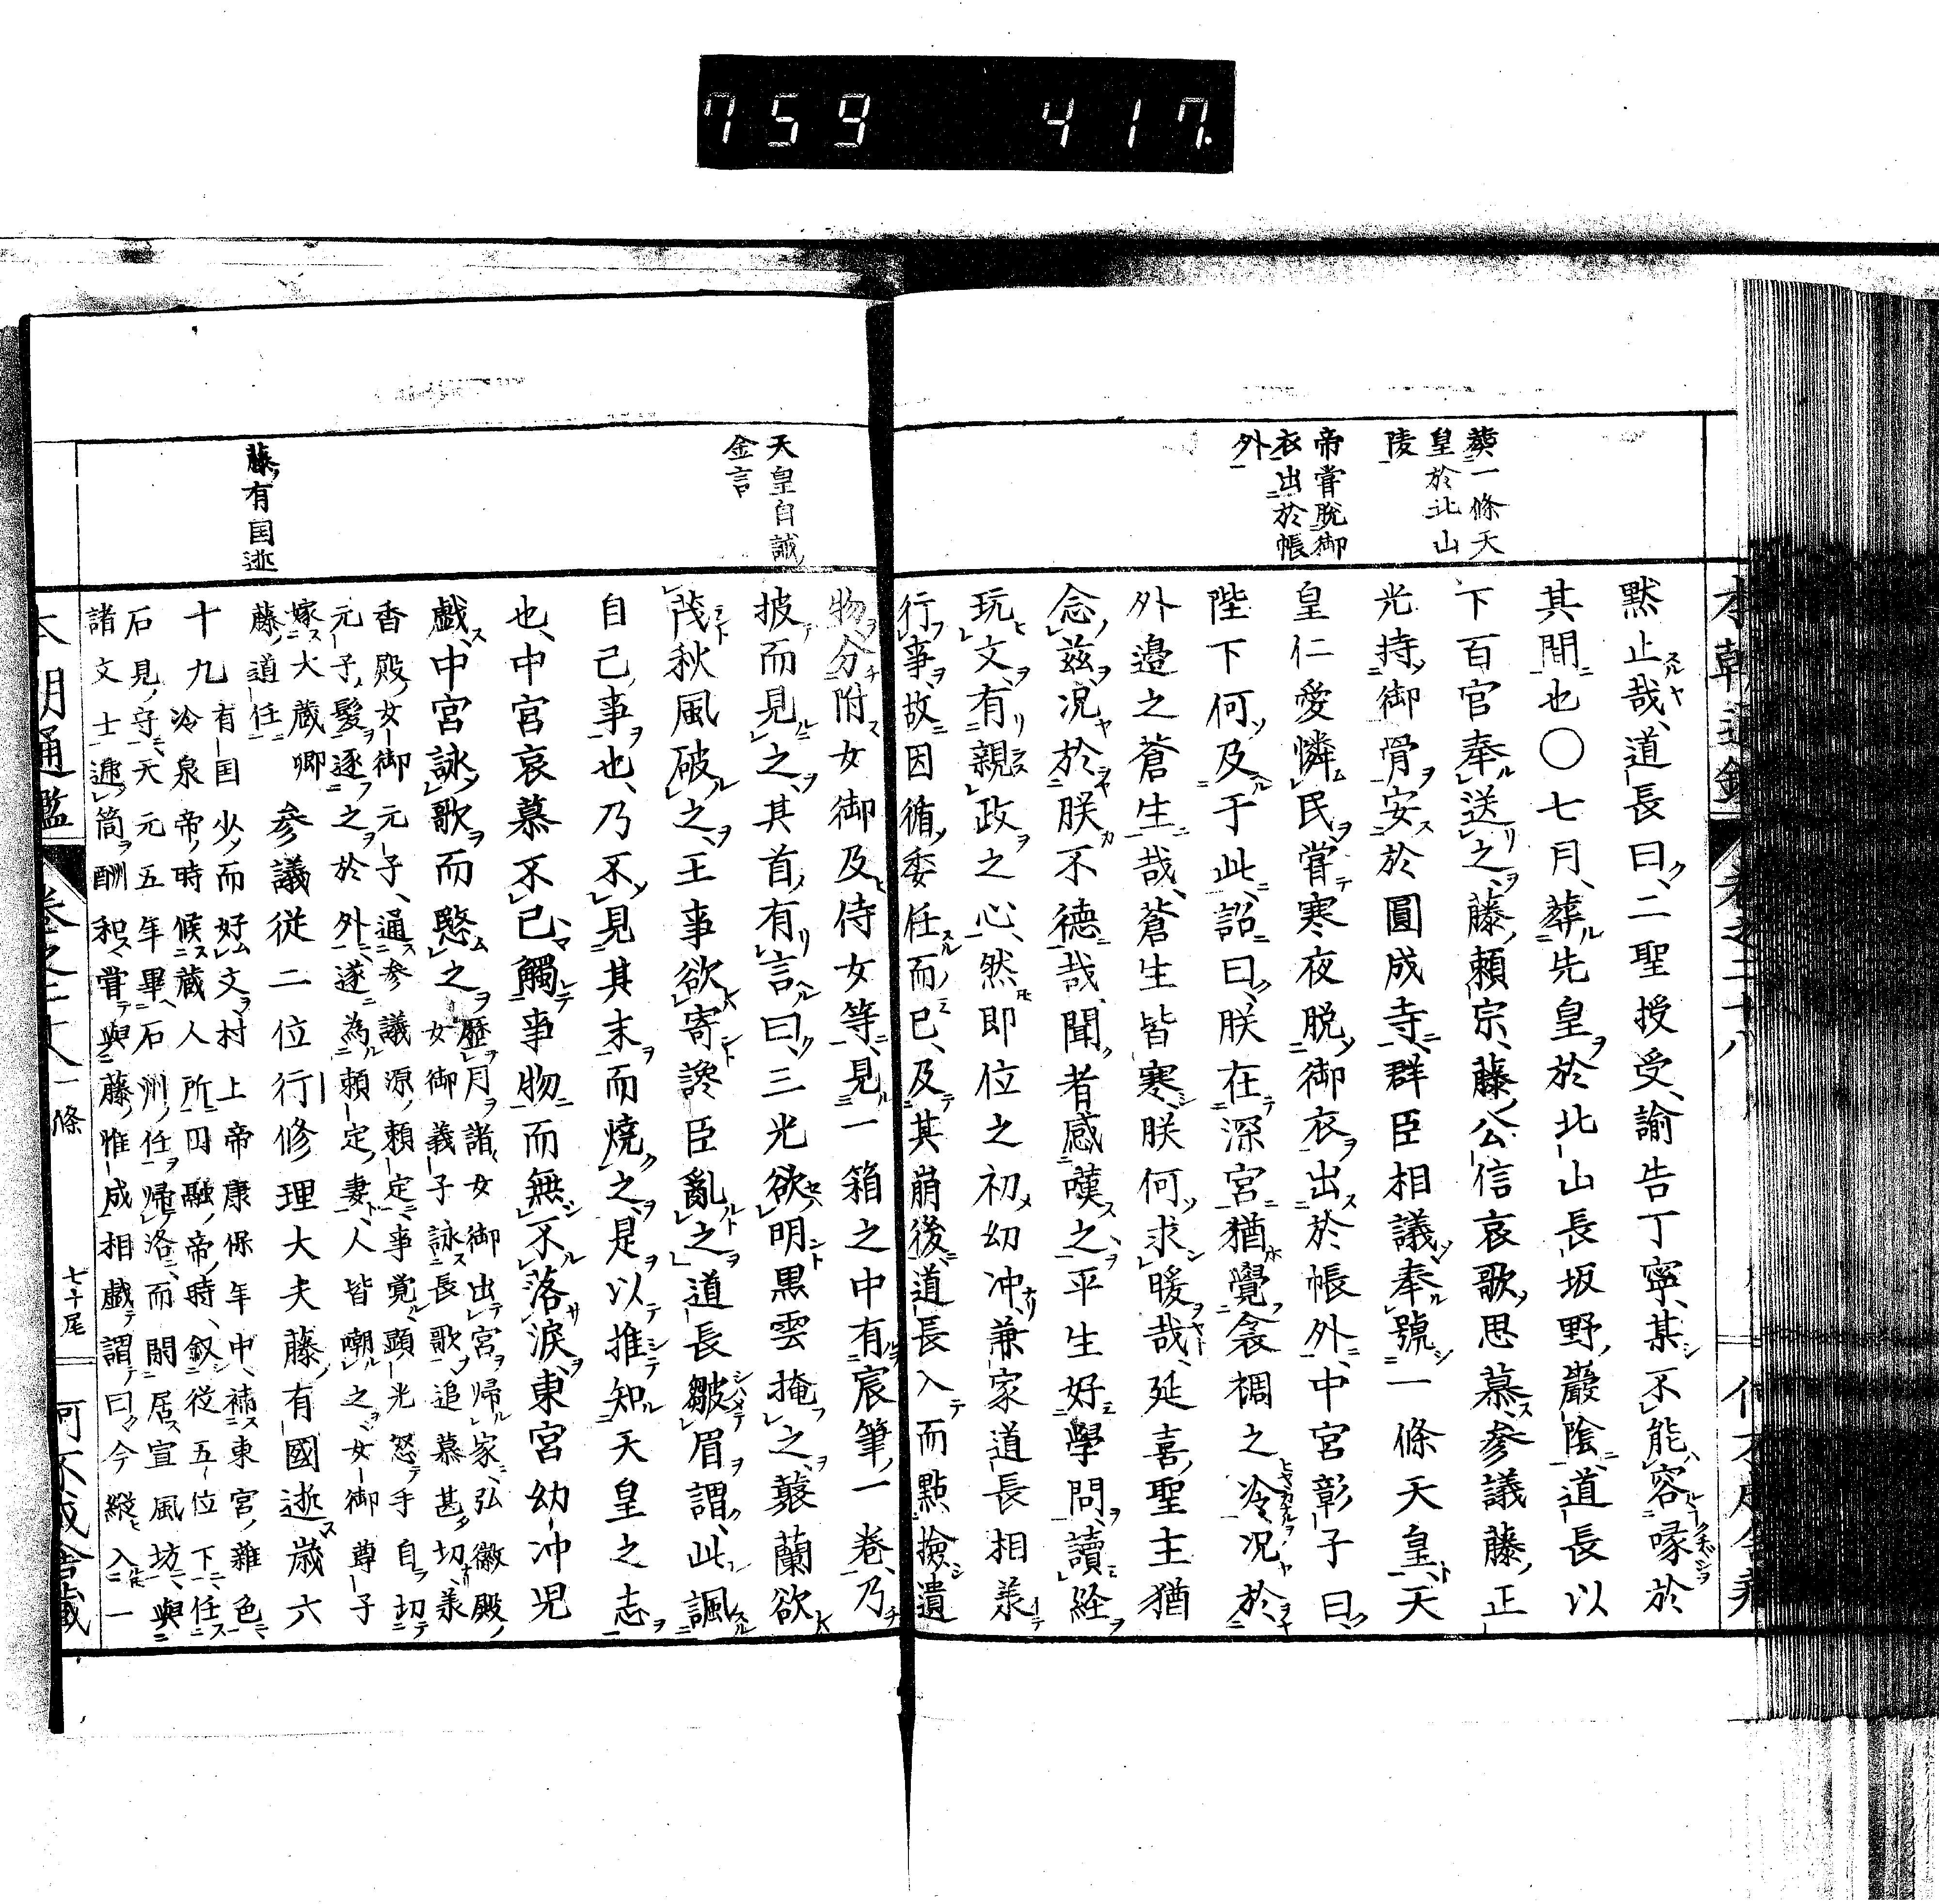 759 417
葬一條天
皇於北山
陵
帝嘗脫御
衣出於帳
外
默止哉、道長曰、二聖授受、諭告丁寧、某不能容喙於
其間也〇七月、葬先皇於北山長坂野、巖陰、道長以
下百官奉送之、藤頼宗、藤公信哀歌思慕参議藤正
光持御骨安於圓成寺、群臣相議奉號一條天皇、天
皇仁愛憐民、嘗寒夜脫御衣出於帳外、中宮彰子曰、
陛下何及于此、詔曰、朕在深宮猶覺衾裯之冷、况於
外邉之蒼生哉、蒼生皆寒、朕何求暖哉、延喜聖主猶
念茲、况於朕不德哉、聞者感嘆之、平生好學問、讀経
玩文、有親政之心、然即位之初幼冲、兼家道長相羕
行事、故因循委任而已、及其崩後、道長入而點撿遺
天皇自誡
金言
藤有国逝
物分附女御及侍女等、見一箱之中有宸筆一卷、乃
披而見之、其首有言曰、三光欲明黒雲掩之、藂蘭欲
茂秋風破之、王事欲寄讒臣亂之、道長皺眉謂、此諷
自己事也、乃不見其末而焼之、是以推知天皇之志
也、中宮哀慕不已、觸事物而無不落淚、東宮幼冲児
戲、中宮詠歌而愍之歷月諸女御出宮歸家、弘徽殿
女御義子詠長歌追慕甚切、羕
香殿女御元子、通参議源頼定、事覺、顕光怒手自切
元子髮逐之於外、遂為頼定妻、人皆嘲之、女御尊子
嫁大蔵卿
藤道任
参議従二位行修理大夫藤有國逝歳六
十九有国少而好文、村上帝康保年中、補東宮雜色、
冷泉帝時候蔵人所、円融帝時、叙従五位下、任
石見守、天元五年畢、石州任帰洛、而閑居宣風坊、與
諸文士逓筒酬和、嘗與藤惟成相戲謂曰、今縱入一
本朝通鑑
卷之二十八
一條
七十尾